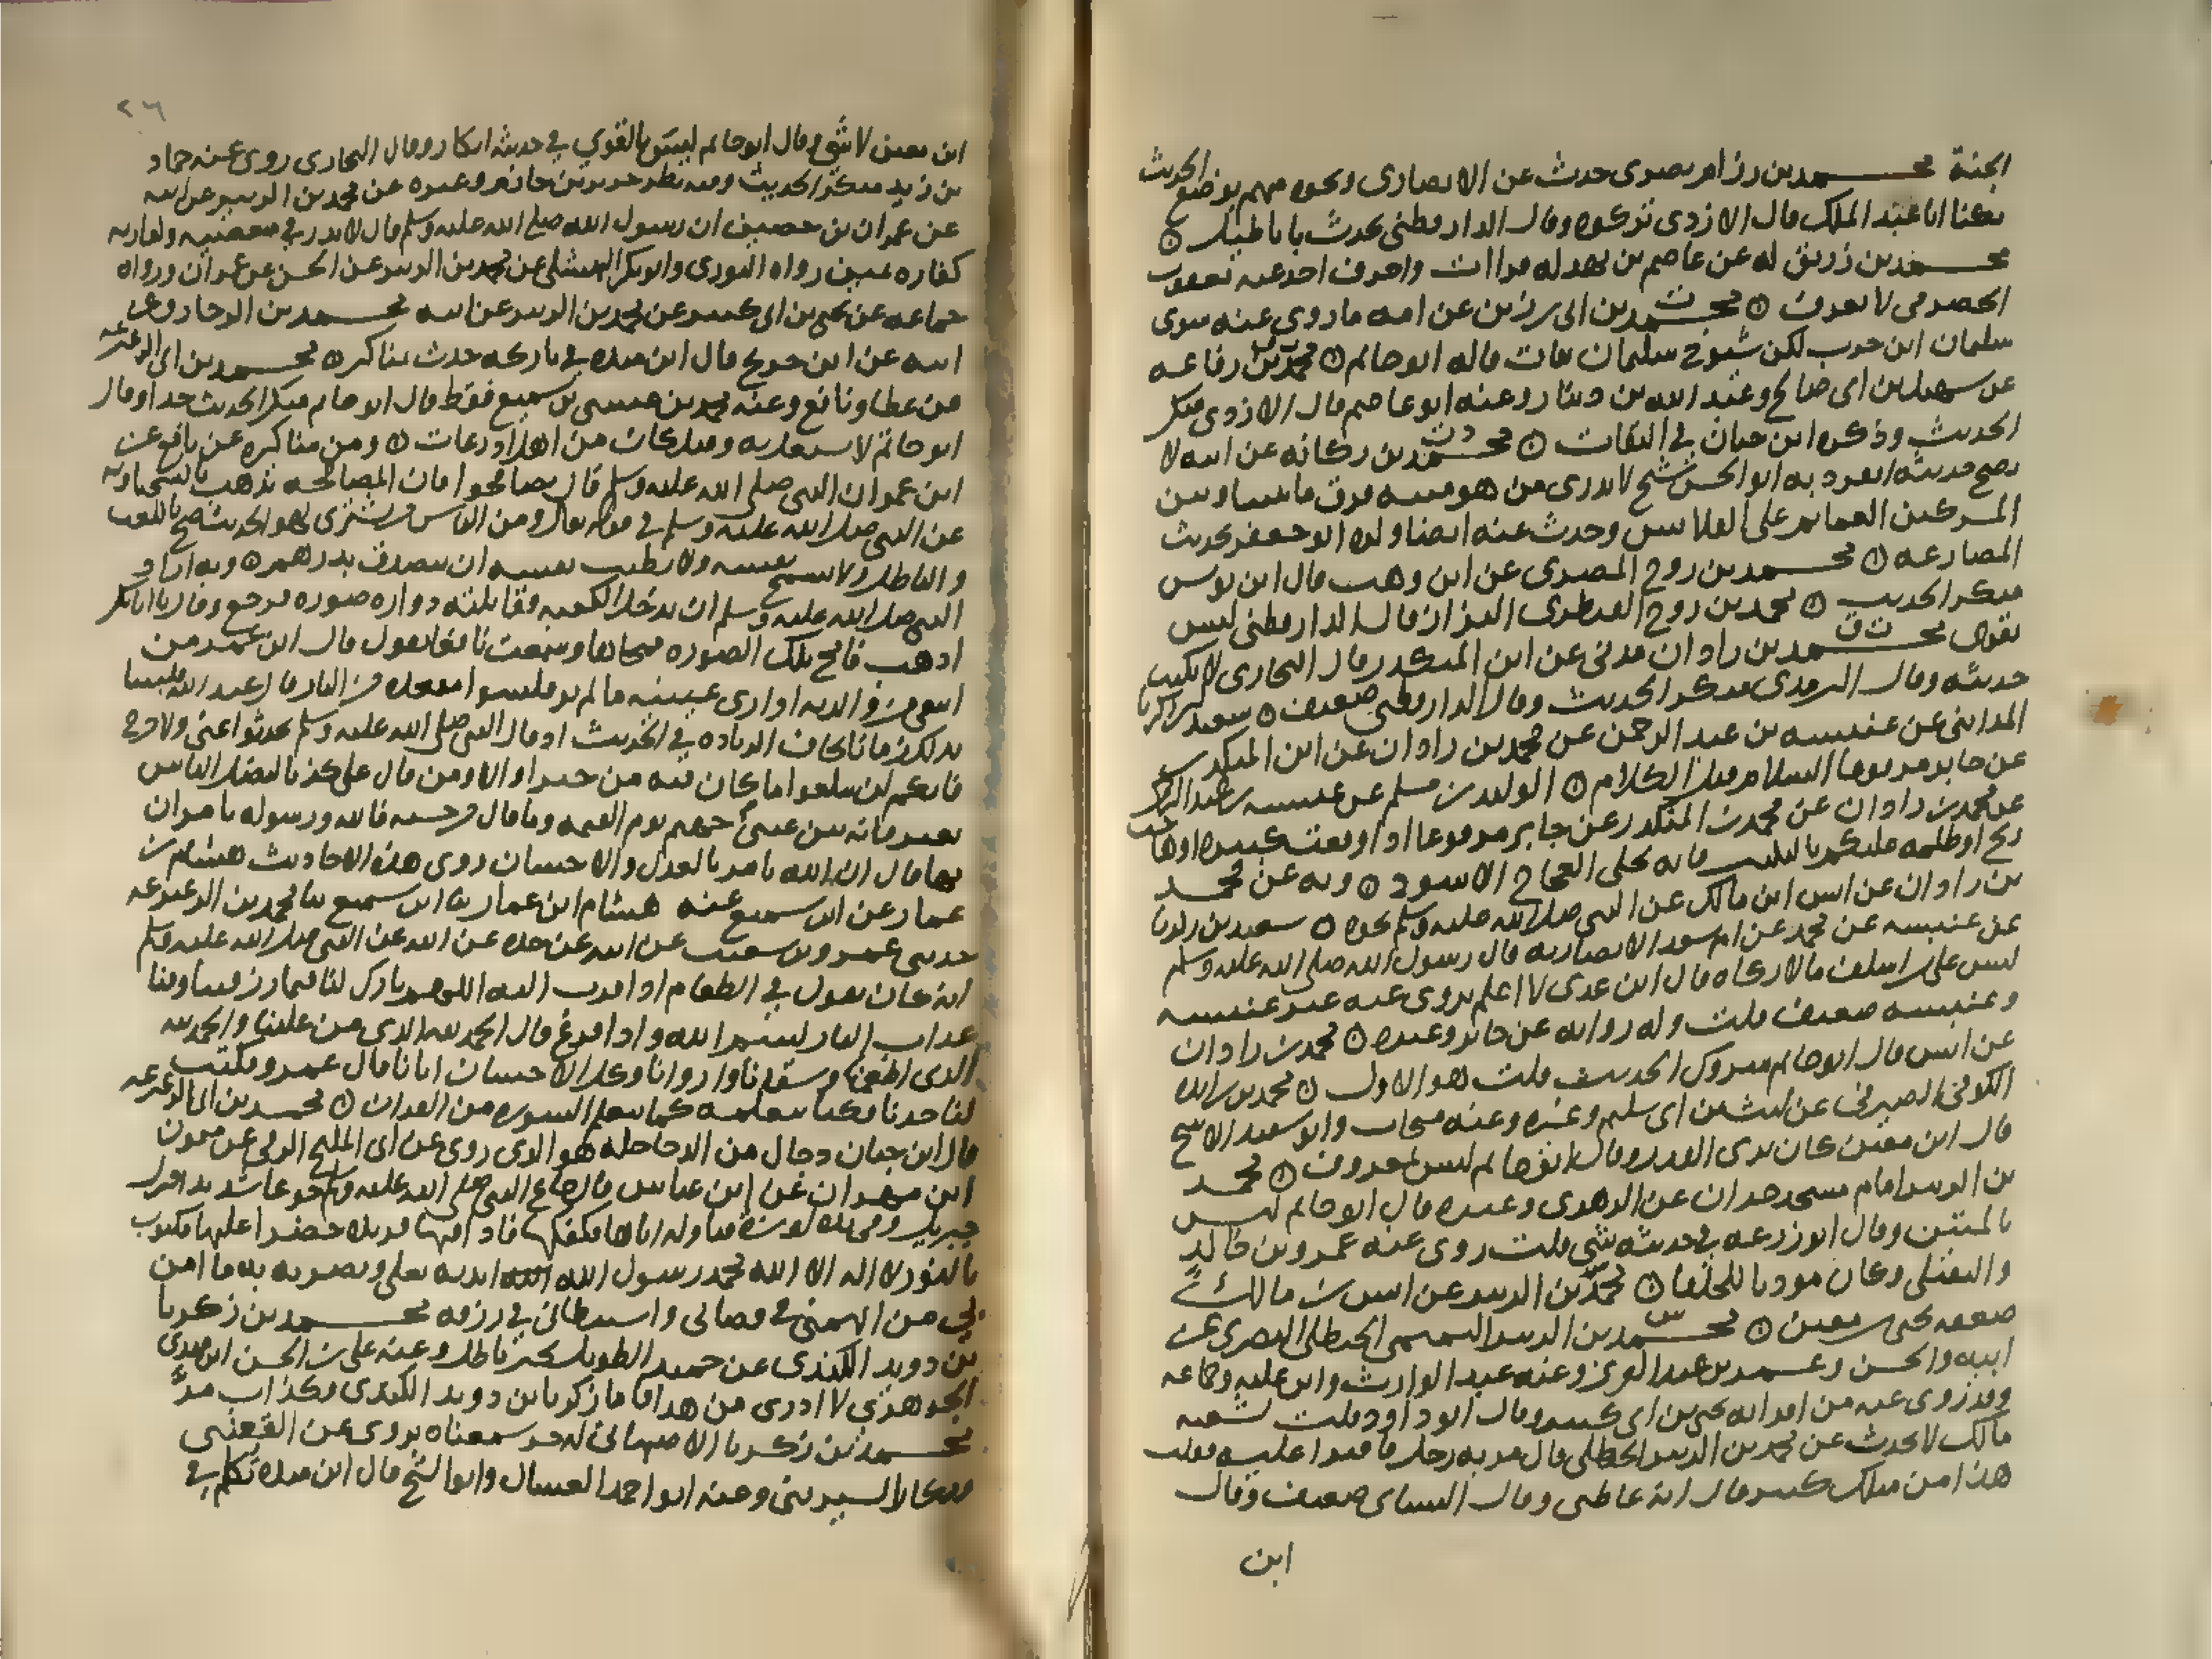 الجنة محمد بن رزام بصرى حدث عن الانصارى ونحوه متهم بوضع الحديث
يكنا ابا عبد الملك قال الازدى تركوه وقال الدارقطنى يحدث باباطيل
محمد بن زريق له عن عاصم بن بهدله قراات واحرف اخذ عنه يعقوب
الحضرمى لا يعرف محمد بن ابى رزين عن امه ما روى عنه سوى
سلمان ابن حرب لكن شيوخ سليمان ثقات قاله ابو حاتم محمد بن رفاعه
عن سهيل بن ابى صالح وعبد الله بن دينار وعنه ابو عاصم قال الازدى منكر
الحديث وذكره ابن حبان فى الثقات محمد بن ركانه عن ابيه لا
يصح حديثه انفرد به ابو الحسن شيخ لا يدرى من هو متنه فرق ما بيننا وبين
المشركين العمايم على القلانس وحدث عنه ايضا ولده ابو جعفر بحديث
المصارعه محمد بن روح المصرى عن ابن وهب قال ابن يونس
منكر الحديث محمد بن روح القنطرى البزاز قال الدارقطنى ليس
بقوى محمد بن زاذان مدنى عن ابن المنكدر قال البخارى لا يكتب
حديثه وقال الترمذى منكر الحديث وقال الدارقطنى ضعيف سعيد بن زكريا
المداينى عن عنبسه بن عبد الرحمن عن محمد بن زاذان عن ابن المنكدر
عن جابر مرفوعا السلام قبل الكلام الوليد بن مسلم عن عنبسه بن عبد الرحمن
عن محمد بن زاذان عن محمد بن المنكدر عن جابر مرفوعا اذا وقعت كبيره او هاجت
ريح او ظلمه فعليكم بالتكبير فانه يجلى العجاج الاسود وبه عن محمد
بن زاذان عن انس ابن مالك عن النبى صلى الله عليه وسلم نحوه سعيد بن زكريا
عن عنبسه عن محمد عن ام سعد الانصاريه قال رسول الله صلى الله عليه وسلم
ليس على من اسلف مالا زكاه قال ابن عدى لا اعلم يروى عنه غير عنبسه
وعنبسه ضعيف قلت وله روايه عن جابر وغيره محمد بن زاذان
عن انس قال ابو حاتم متروك الحديث قلت هو الاول محمد بن زايده
الكوفى الصيرفى عن ليث بن ابى سليم وغيره وعنه منجاب وابو سعيد الاشج
قال ابن معين كان يرى القدر وقال ابو حاتم ليس بمعروف محمد
بن الزبير امام مسجد حران عن الزهرى وغيره قال ابو حاتم ليس
بالمتين وقال ابو زرعه فى حديثه شى قلت روى عنه عمرو بن خالد
والنفيلى وكان مودبا للخلفا محمد بن الزبير عن انس بن مالك
ضعفه يحيى بن معين محمد بن الزبير التميمى الحنظلى البصرى عن
ابيه والحسن وعمر بن عبد العزيز وعنه عبد الوارث وابن عليه وجماعه
وقد روى عنه من اقرانه يحيى بن ابى كثير وقال ابو داود قلت لشعبه
مالك لا تحدث عن محمد بن الزبير الحنظلى قال مر به رجل فافترا عليه فقلت
هذا من مثلك كثير قال انه غاظنى وقال النسائى ضعيف وقال
ابن
٢٦
ابن معين لا شى وقال ابو حاتم ليس بالقوي في حديثه انكار وقال البخارى روى عنه حماد
بن زيد منكر الحديث وفيه نظر جرير بن حازم وغيره عن محمد بن الزبير عن ابيه
عن عمران بن حصين ان رسول الله صلى الله عليه وسلم قال لا نذر فى معصيه وكفارته
كفاره يمين رواه الثورى وابو بكر النهشلى عن محمد بن الزبير عن الحسن عن عمران ورواه
جماعه عن يحيى بن ابى كثير عن محمد بن الزبير عن ابيه محمد بن الزجاز وعن
ابيه عن ابن جريج قال ابن منده فى تاريخه حدث بمناكير محمد بن ابى الزعيزعه
عن عطا ونافع وعنه محمد بن عيسى بن سميع فقط قال ابو حاتم منكر الحديث جدا وقال
ابو حاتم لا يشتغل به وقيل كان من اهل اذرعات ومن مناكيره عن نافع عن
ابن عمر ان النبى صلى الله عليه وسلم قال تصافحوا فان المصافحه تذهب بالشحنا وبه
عن النبى صلى الله عليه وسلم فى قوله تعالى ومن الناس من يشترى لهو الحديث باللعب
والباطل ولا تسمح نفسه ولا تطيب نفسه ان يتصدق بدرهم وبه اراد
النبى صلى الله عليه وسلم ان يدخل الكعبه فقابلته صوره فرجع وقال يا ابا بكر
اذهب فامح تلك الصوره فمحاها وسمعت نافعا يقول قال ابن عمر من
الزياده فى الحديث اذ قال النبى صلى الله عليه وسلم حدثوا عنى ولا حرج
فانكم لن تبلغوا ما كان فيه من خير او الا ومن قال على كذبا ليضل الناس
بغير علم فانه بين عينى جهنم يوم القيمه وما قال من حسنه فالله ورسوله يامران
بها قال ان الله يامر بالعدل والاحسان روى هذه الاحاديث هشام بن
عمار عن ابن سميع عنه هشام ابن عمار ثنا ابن سميع ثنا محمد بن الزعيزعه
حدثنى عمرو بن شعيب عن ابيه عن جده عن النبى صلى الله عليه وسلم
انه كان يقول فى الطعام اذا قرب اليه اللهم بارك لنا فيما رزقتنا وقنا
عذاب النار بسم الله واذا فرغ قال الحمد لله الذى من علينا والحمد لله
الذى اطعمنا وسقانا واروانا وكل الاحسان اتانا قال عمرو فكتب
لنا جدنا فكنا نتعلمه كما نتعلم السوره من القران محمد بن ابى الزعيزعه
قال ابن حبان دجال من الدجاجله هو الذى روى عن ابى المليح الرقى عن ميمون
ابن مهران عن ابن عباس قال جاع النبى صلى الله عليه وسلم جوعا شديدا فنزل
جبريل وفى يده لوزه فناوله اياها ففكها فاذا فيها فريده خضرا عليها مكتوب
بالنور لا اله الا الله محمد رسول الله ايدته بعلى ونصرته به ما امن
بى من اتهمنى فى قضائى واستبطانى فى رزقه محمد بن زكريا
بن دويد الكندى عن حميد الطويل بخبر باطل وعنه على بن الحسن ابن
الجوهرى لا ادرى من هذا فاما زكريا بن دويد الكندى فكذاب مر
محمد بن زكريا الاصبهانى يروى عن القعنبى
وبكار السيرينى وعنه ابو احمد العسال وابو الشيخ قال ابن منده تكلم فى